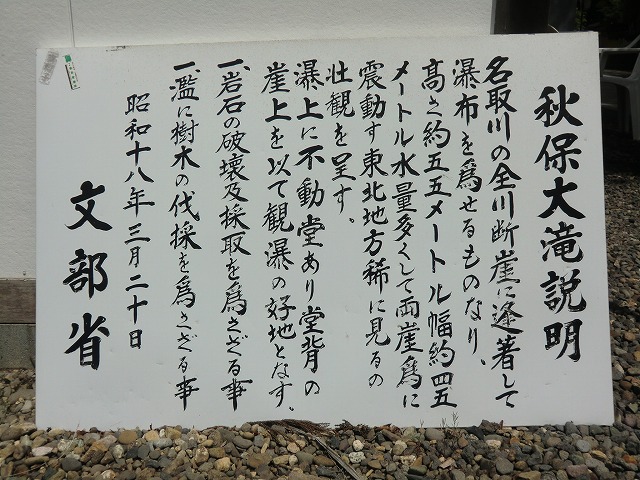 秋保大滝説明
名取川の全川断崖に逢著して
瀑布を為せるものなり、
高さ約五五メートル幅約四五
メートル水量多くして両崖為に
震動す東北地方稀に見るの
壮観を呈す。
瀑上に不動堂あり堂背の
崖上を以て観瀑の好地となす。
一、岩石の破壊及採取を為さざる事
一、濫に樹木の伐採を為さざる事
昭和十八年三月二十日
文部省